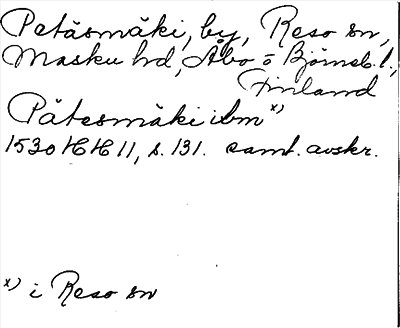 Petäsmäki, by, Reso sn,
Masku hd, Åbo o Björneb. l.,
Finland
Pätesmäki ibm x)
1530 HH II, s. 131. samt. avskr.
x) i Reso sn